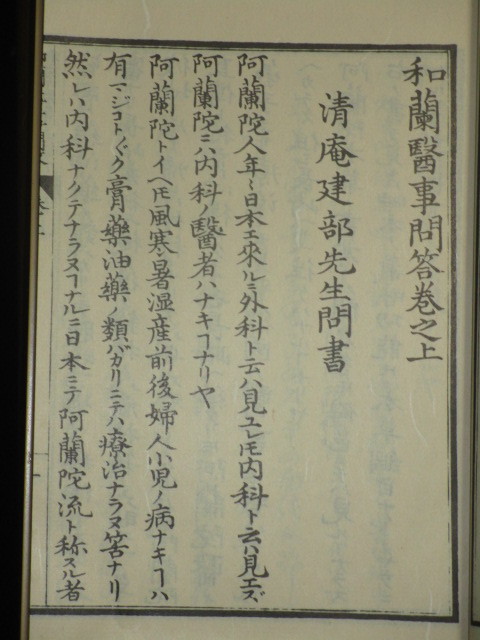 和蘭醫事問答卷之上
清庵建部先生問書
阿蘭陀人年〻日本エ來ルニ外科ト云ハ見ユレ𪜈内科ト云ハ見エズ
阿蘭陀ニハ内科ノ醫者ハナキヿナリヤ
阿蘭陀トイヘ𪜈風寒暑湿産前後婦人小児ノ病ナキヿハ
有マジコトゾク膏藥油藥ノ類バカリニテハ療治ナラヌ筈ナリ
然レハ内科ナクテナラヌヿナルニ日本ニテ阿蘭陀流ト称スル者